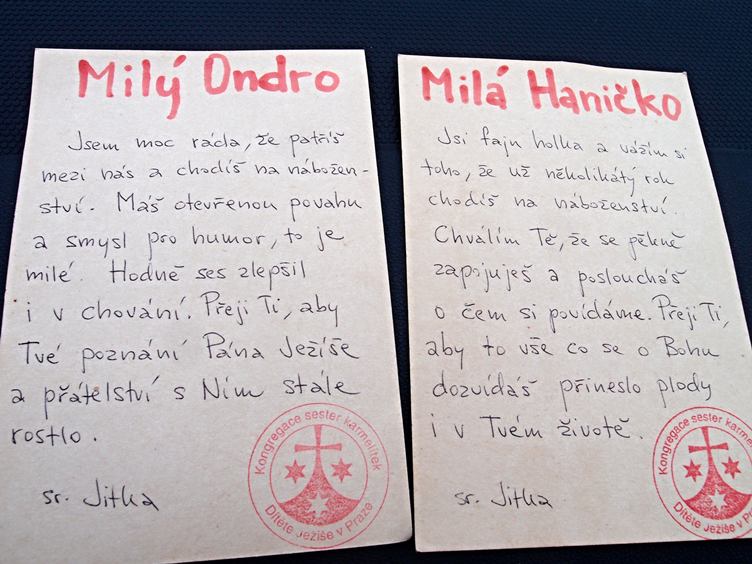 Milý Ondro
Jsem moc ráda, že patříš
mezi nás a chodíš na nábožen-
ství. Máš otevřenou povahu
a smysl pro humor, to je
milé. Hodně ses zlepšil
i v chování. Přeji Ti, aby
Tvé poznání Pána Ježíše
a přátelství s Ním stále
rostlo.
sr. Jitka
Kongregace sester karmelitek
Dítěte Ježíše v Praze
Milá Haničko
Jsi fajn holka a vážím si
toho, že už několikátý rok
chodíš na náboženství.
Chválím Tě, že se pěkně
zapojuješ a posloucháš
o čem si povídáme. Přeji Ti,
aby to vše co se o Bohu
dozvídáš přineslo plody
i v Tvém životě.
sr. Jitka
Kongregace sester karmelitek
Dítěte Ježíše v Praze